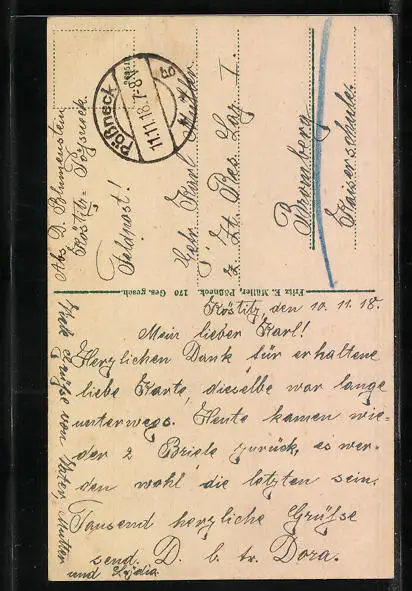 Abs. D. Blumenstein
Köstitz-Pößneck.
Feldpost!
Pößneck
11.11.18.7-8V.
Gefr. Karl Müller
z. Zt. Res. Laz. I.
Bromberg
Kaiserschule.
Fritz E. Müller, Pößneck. 170 Ges. gesch.
Köstitz, den 10. 11. 18.
Mein lieber Karl!
Herzlichen Dank für erhaltene
liebe Karte, dieselbe war lange
unterwegs. Heute kamen wie-
der 2 Briefe zurück, es wer-
den wohl die letzten sein.
Tausend herzliche Grüße
send. D. b. tr. Dora.
Grüße von Vater, Mutter
und Lydia.